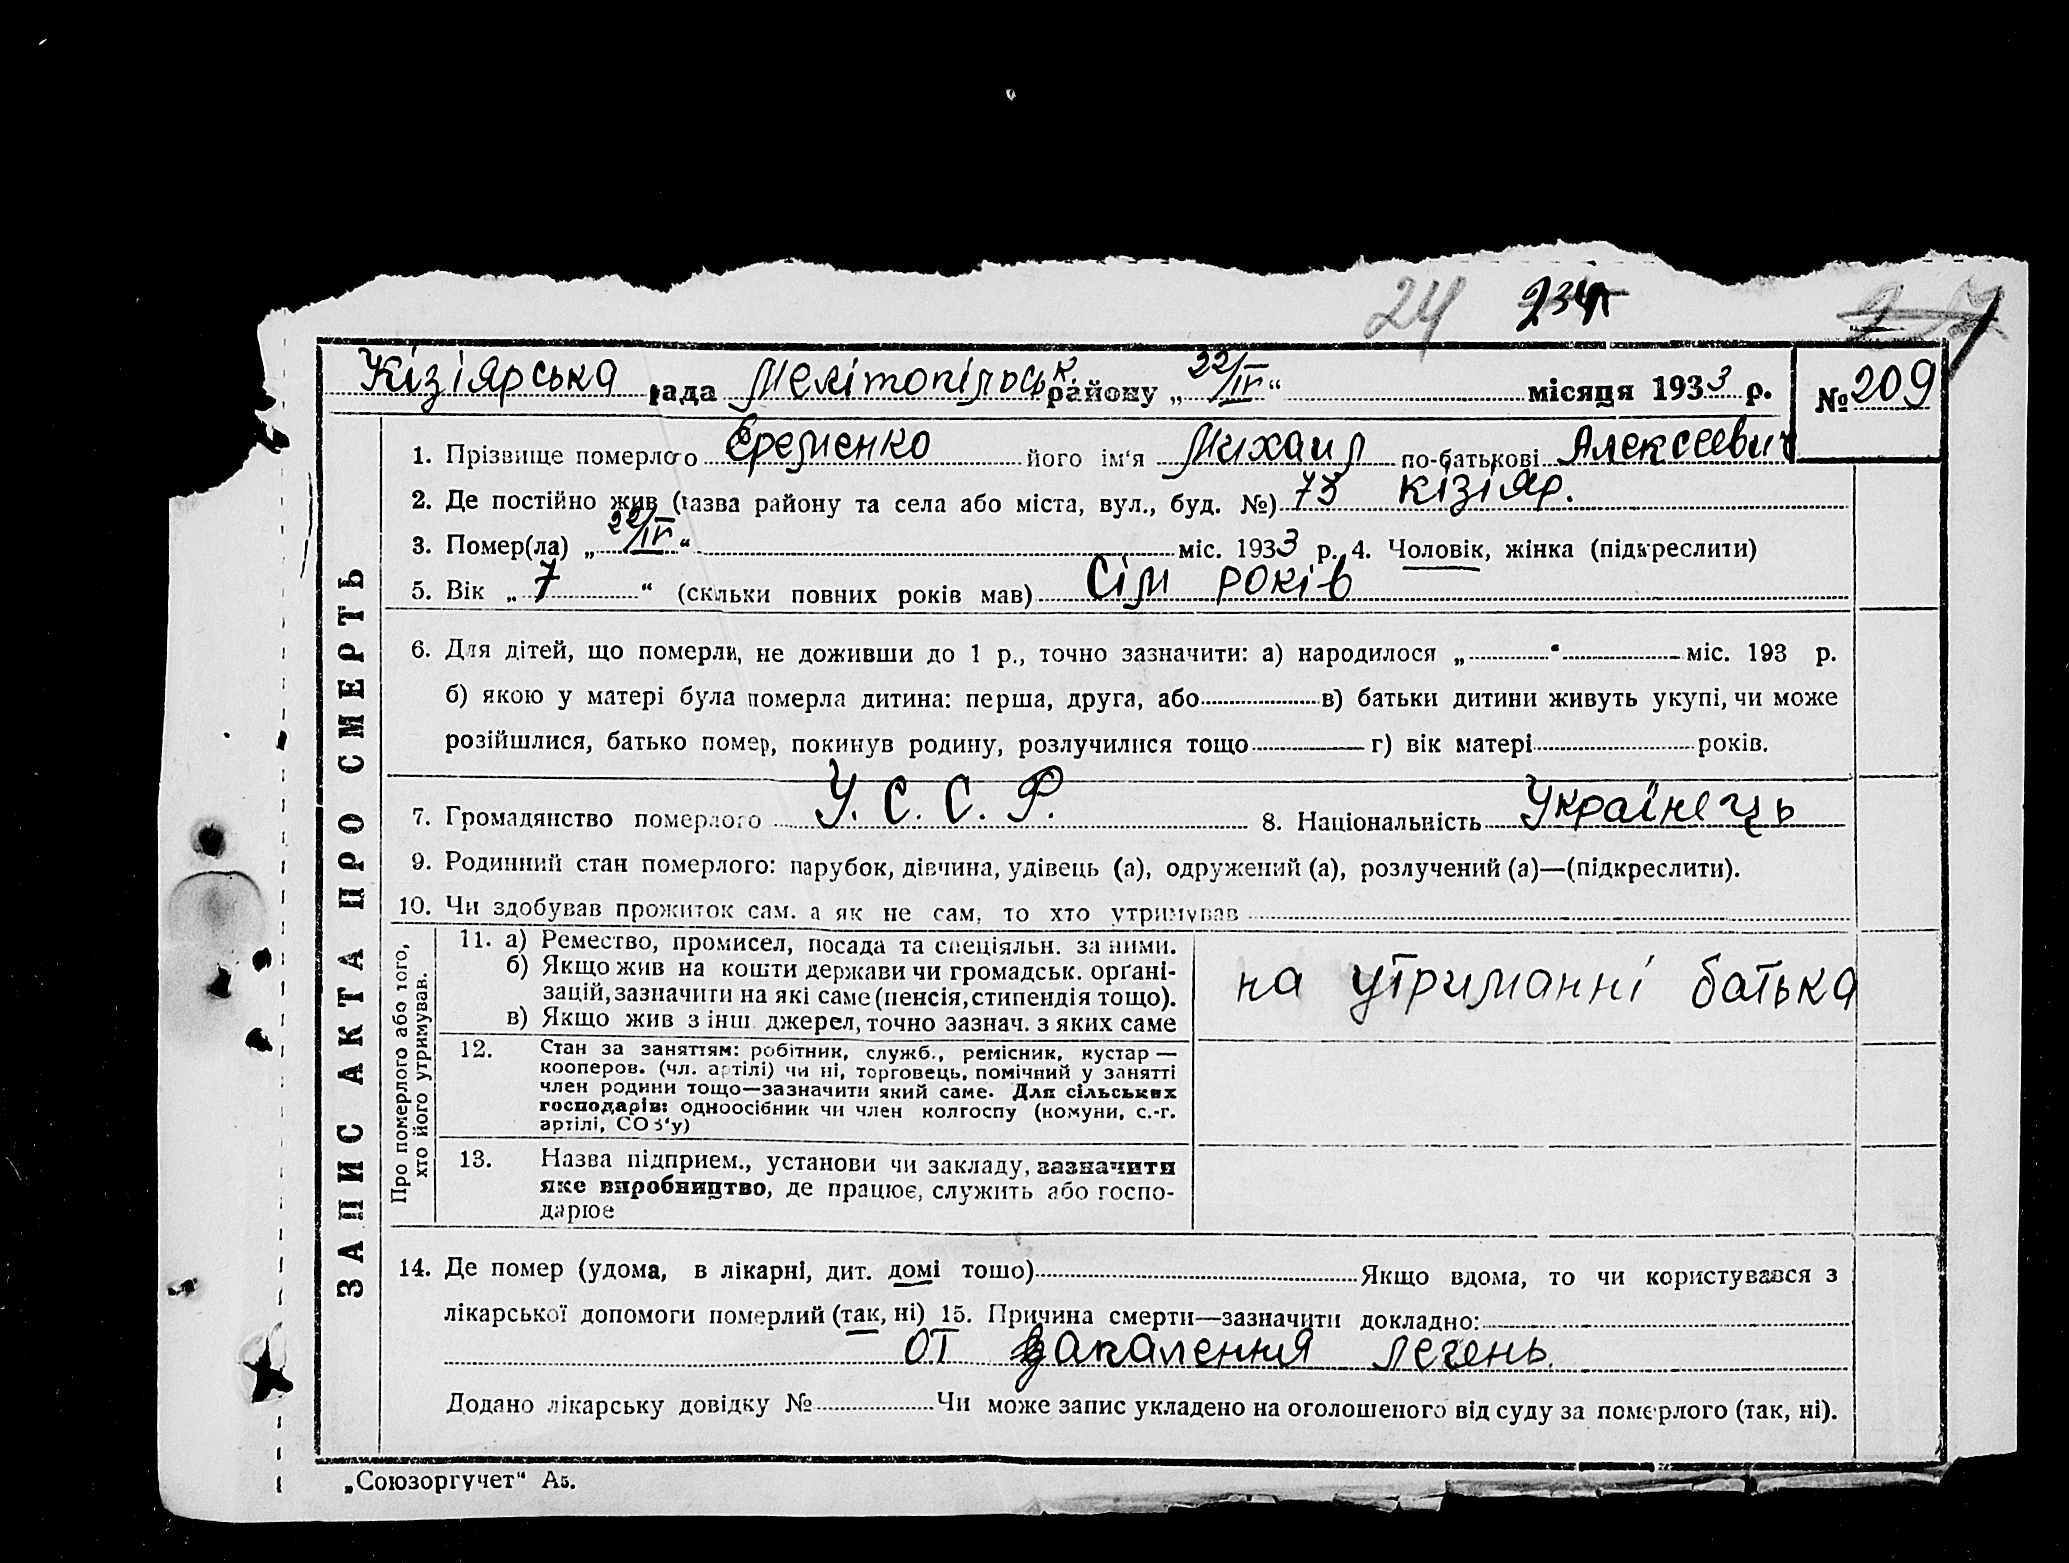 24 234
Кізіярська рада Мелітопільськ району „22/IV“ місяця 1933 р. № 209
ЗАПИС АКТА ПРО СМЕРТЬ
1. Прізвище померлого Еременко його ім'я Михаил по-батькові Алексеевич
2. Де постійно жив (назва району та села або міста, вул., буд. №) 73 Кізіяр.
3. Помер(ла) „22/IV“ міс. 1933 р. 4. Чоловік, жінка (підкреслити)
5. Вік „7“ (скільки повних років мав) Сім років
6. Для дітей, що померли, не доживши до 1 р., точно зазначити: а) народилося „ “ міс. 193 р.
б) якою у матері була померла дитина: перша, друга, або в) батьки дитини живуть укупі, чи може
розійшлися, батько помер, покинув родину, розлучилися тощо г) вік матері років.
7. Громадянство померлого У. С. С. Р. 8. Національність Українець
9. Родинний стан померлого: парубок, дівчина, удівець (а), одружений (а), розлучений (а)—(підкреслити).
10. Чи здобував прожиток сам. а як не сам, то хто утримував
Про померлого або того,
хто його утримував.
11. а) Ремество, промисел, посада та спеціяльн. за ними.
б) Якщо жив на кошти держави чи громадськ. орґані-
зацій, зазначити на які саме (пенсія, стипендія тощо).
в) Якщо жив з інш джерел, точно зазнач. з яких саме
на утриманні батька
12. Стан за заняттям: робітник, служб., ремісник, кустар —
кооперов. (чл. артілі) чи ні, торговець, помічний у занятті
член родини тощо—зазначити який саме. Для сільських
господарів: одноосібник чи член колгоспу (комуни, с.-г.
артілі, СОЗ'у)
13. Назва підприєм., установи чи закладу, зазначити
яке виробництво, де працює, служить або госпо-
дарює
14. Де помер (удома, в лікарні, дит. домі тощо) Якщо вдома, то чи користувався з
лікарської допомоги померлий (так, ні) 15. Причина смерти—зазначити докладно:
от запалення легень.
Додано лікарську довідку № Чи може запис укладено на оголошеного від суду за померлого (так, ні).
„Союзоргучет“ А5.